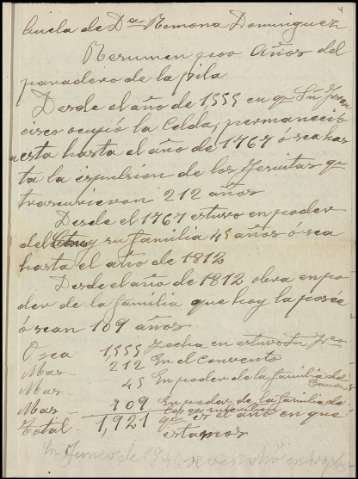 buela de Da Ramona Dominguez
Resumen por Años del
paradero de la pila
Desde el año de 1555 en q Sn Fran
cisco ocupó la Celda, permaneció
esta hasta el año de 1767 ó sea has
ta la expulsion de los Jesuitas q
transcurieron 212 años
Desde el 1767 estuvo en poder
del y su familia 45 años ó sea
hasta el año de 1812
Desde el año de 1812 obra en po
der de la familia que hoy la poseé
ó sean 109 años
O sea 1,555 fecha en estuvo Sn Fco
Mas 212 En el Convento
Mas 45 En poder de la familia del
Mas 109 En poder de la familia de
Total 1,921 q es el año en que
estamos
En Junio de 19